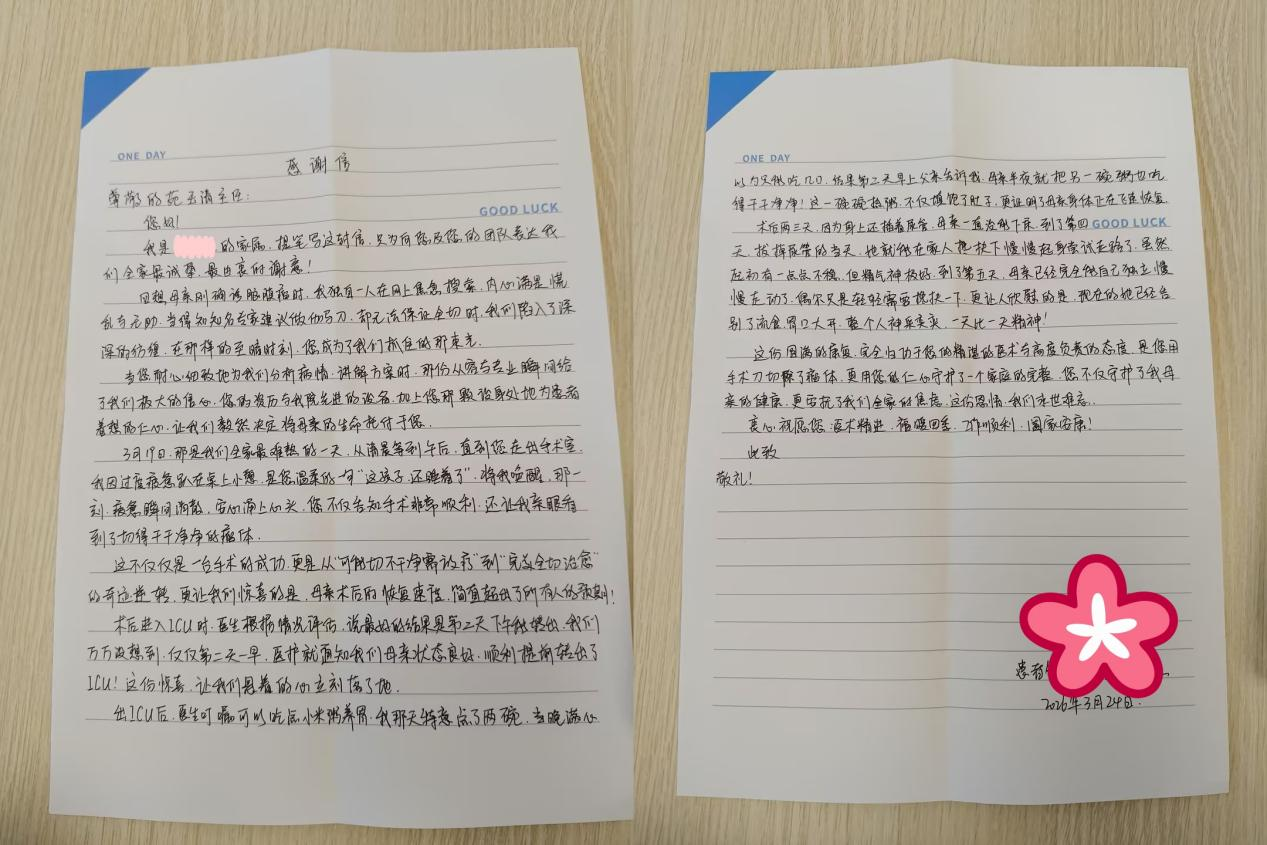 ONE DAY
感谢信
尊敬的苑玉清主任:
您好!
GOOD LUCK
我是 的家属,提笔写这封信,只为向您及您的团队表达我
们全家最诚挚、最由衷的谢意!
回想母亲刚确诊脑膜瘤时,我独自一人在网上焦急搜索,内心满是慌
乱与无助。当得知知名专家建议做伽马刀,却无法保证全切时,我们陷入了深
深的彷徨。在那样的至暗时刻,您成为了我们抓住的那束光。
当您耐心细致地为我们分析病情、讲解方案时,那份从容与专业瞬间给
了我们极大的信心。您的资历与我院先进的设备,加上您那颗设身处地为患者
着想的仁心,让我们毅然决定将母亲的生命托付于您。
3月19日,那是我们全家最难熬的一天。从清晨等到午后,直到您走出手术室,
我因过度疲惫趴在桌上小憩,是您温柔的一句“这孩子,还睡着了”,将我唤醒,那一
刻,疲惫瞬间消散,安心涌上心头。您不仅告知手术非常顺利,还让我亲眼看
到了切得干干净净的瘤体。
这不仅仅是一台手术的成功,更是从“可能切不干净需放疗”到“完美全切治愈”
的奇迹逆转。更让我们惊喜的是,母亲术后的恢复速度,简直超出了所有人的预期!
术后进入ICU时,医生根据情况评估,说最好的结果是第二天下午能转出。我们
万万没想到,仅仅第二天一早,医护就通知我们母亲状态良好,顺利提前转出了
ICU!这份惊喜,让我们悬着的心立刻落了地。
出ICU后,医生叮嘱可以吃点小米粥养胃,我那天特意点了两碗,当晚满心
ONE DAY
以为只能吃几口,结果第二天早上父亲告诉我,母亲半夜就把另一碗粥也吃
得干干净净!这一碗碗热粥,不仅填饱了肚子,更证明了母亲身体正在飞速恢复。
术后两三天,因为身上还插着尿管,母亲一直没能下床。到了第四
GOOD LUCK
天,拔掉尿管的当天,她就能在家人搀扶下慢慢起身尝试走路了。虽然
起初有一点点不稳,但精气神极好。到了第五天,母亲已经完全能自己独立慢
慢走动了,偶尔只是轻轻需要搀扶一下。更让人欣慰的是,现在的她已经告
别了流食,胃口大开,整个人神采奕奕,一天比一天精神!
这份圆满的康复,完全归功于您的精湛的医术与高度负责的态度。是您用
手术刀切除了瘤体,更用您的仁心守护了一个家庭的完整。您不仅守护了我母
亲的健康,更安抚了我们全家的焦虑。这份恩情,我们永世难忘。
衷心祝愿您:医术精进,福暖四季,工作顺利,阖家安康!
此致
敬礼!
2026年3月24日.